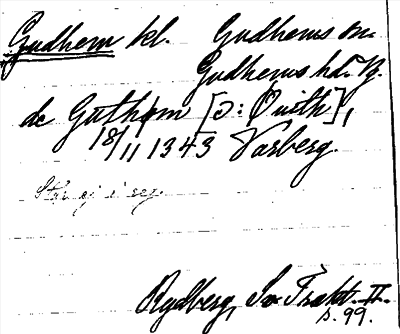 Gudhem kl. Gudhems sn.
Gudhems hd. Vg.
de Guthem [ɔ: Ouith],
18/11 1343 Varberg.
Står ej i reg.
Rydberg, Sv Trakt. II.
s. 99.